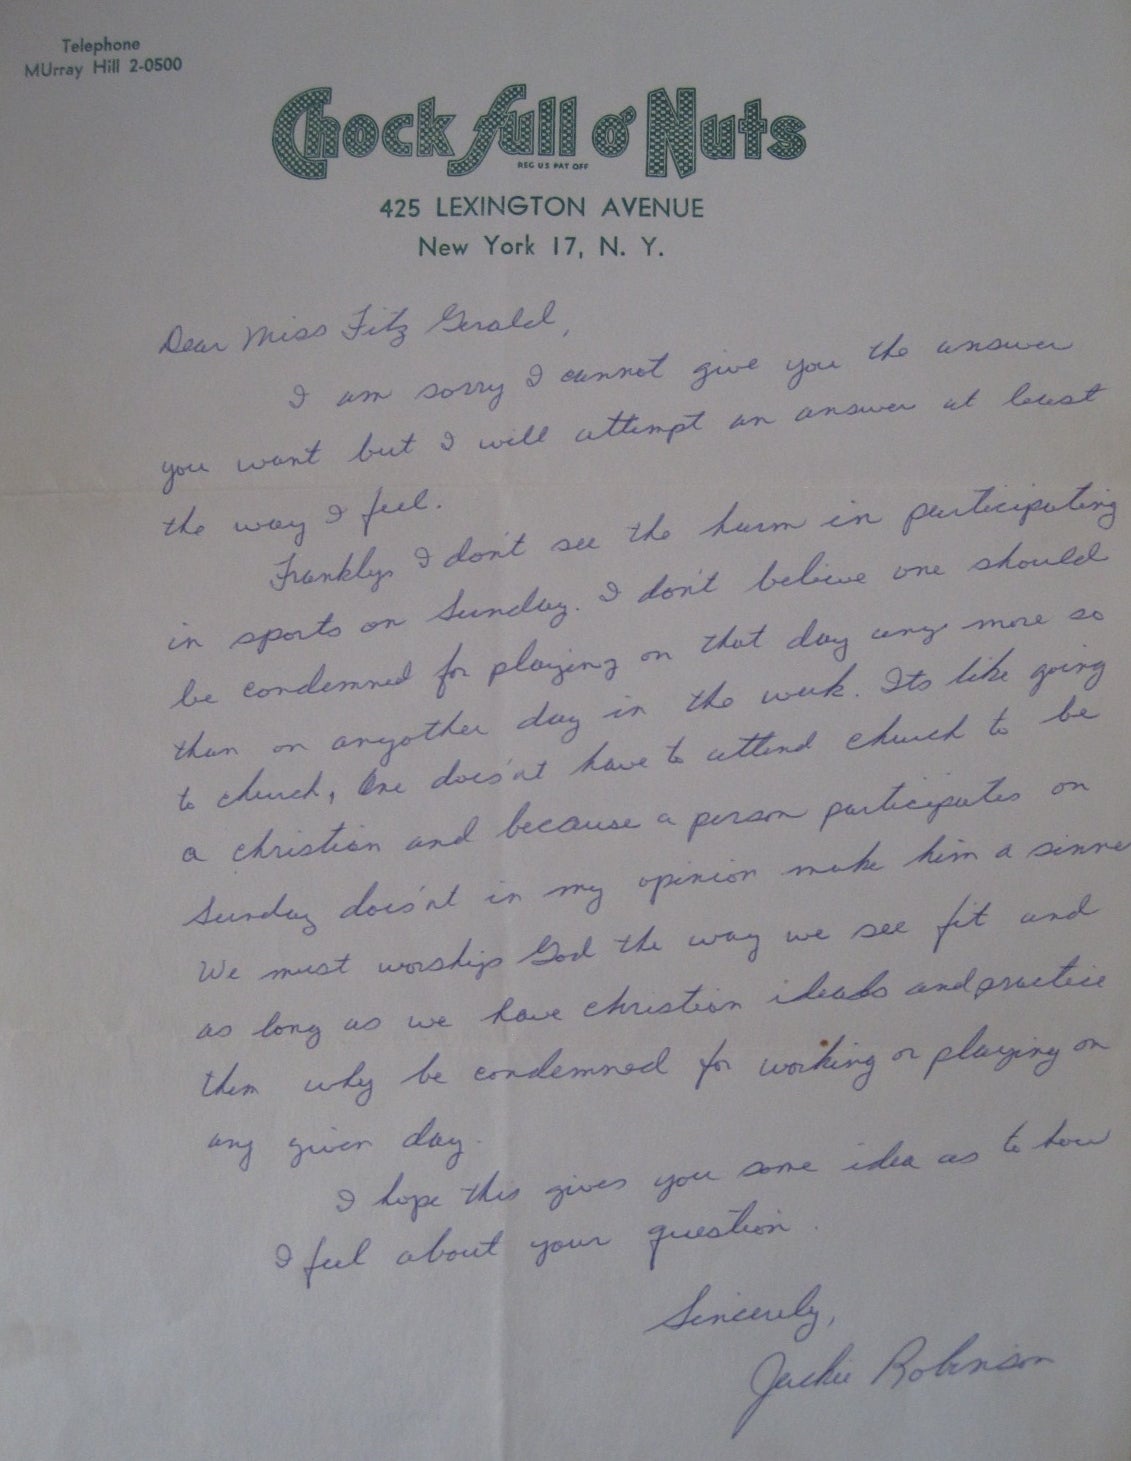 Telephone
MUrray Hill 2-0500
Chock full o' Nuts
REG US PAT OFF
425 LEXINGTON AVENUE
New York 17, N. Y.
Dear Miss Fitz Gerald,
I am sorry I cannot give you the answer
you want but I will attempt an answer at least
the way I feel.
Frankly, I don't see the harm in participating
in sports on Sunday. I don't believe one should
be condemned for playing on that day any more so
than on anyother day in the week. Its like going
to church, One does'nt have to attend church to be
a christian and because a person participates on
Sunday does'nt in my opinion make him a sinne
We must worship God the way we see fit and
as long as we have christian ideals and practice
them why be condemned for working or playing on
any given day.
I hope this gives you some idea as to how
I feel about your question.
Sincerely,
Jackie Robinson